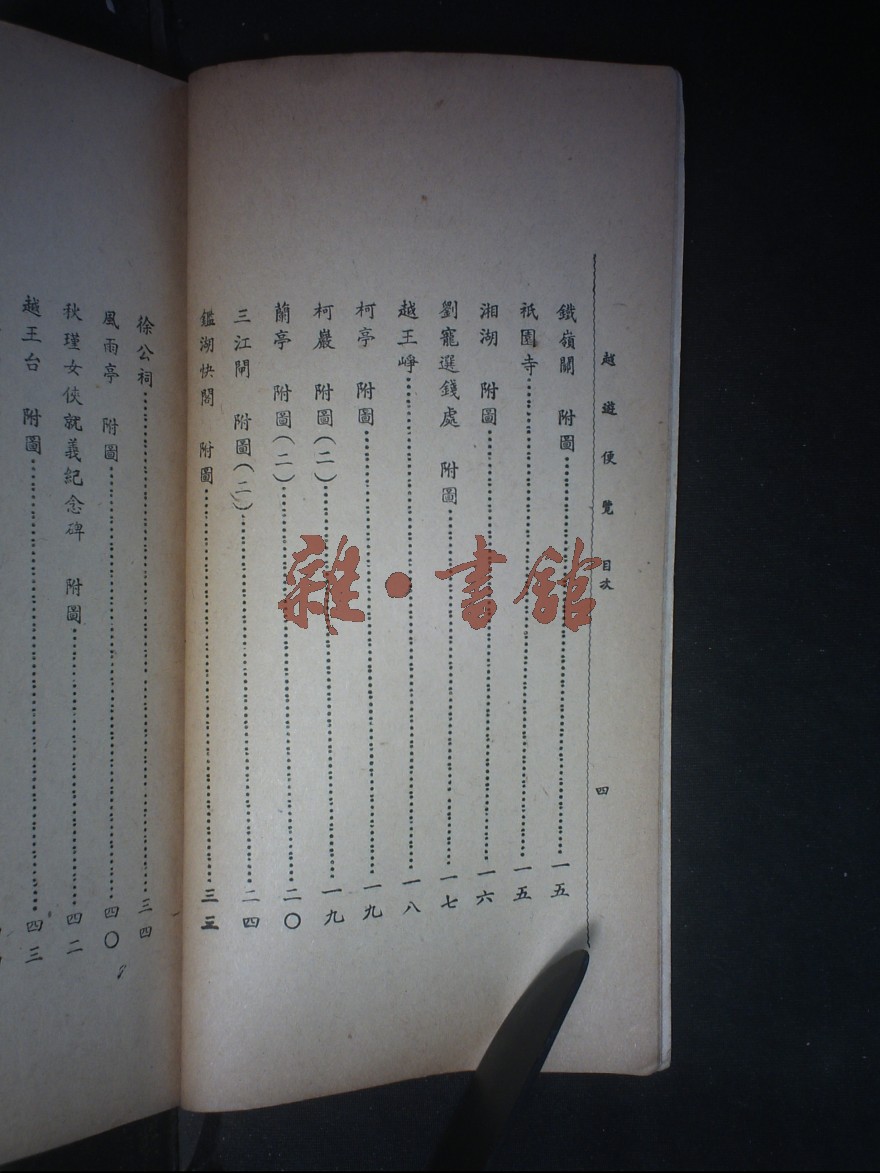 越遊便覽 目次 四
鐵嶺關 附圖……一五
祇園寺……一五
湘湖 附圖……一六
劉寵選錢處 附圖……一七
越王崢……一八
柯亭 附圖……一九
柯巖 附圖(二)……一九
蘭亭 附圖(二)……二〇
三江閘 附圖(二)……二四
鑑湖快閣 附圖……三三
徐公祠……三四
風雨亭 附圖……四〇
秋瑾女俠就義紀念碑 附圖……四二
越王台 附圖……四三
雜·書館